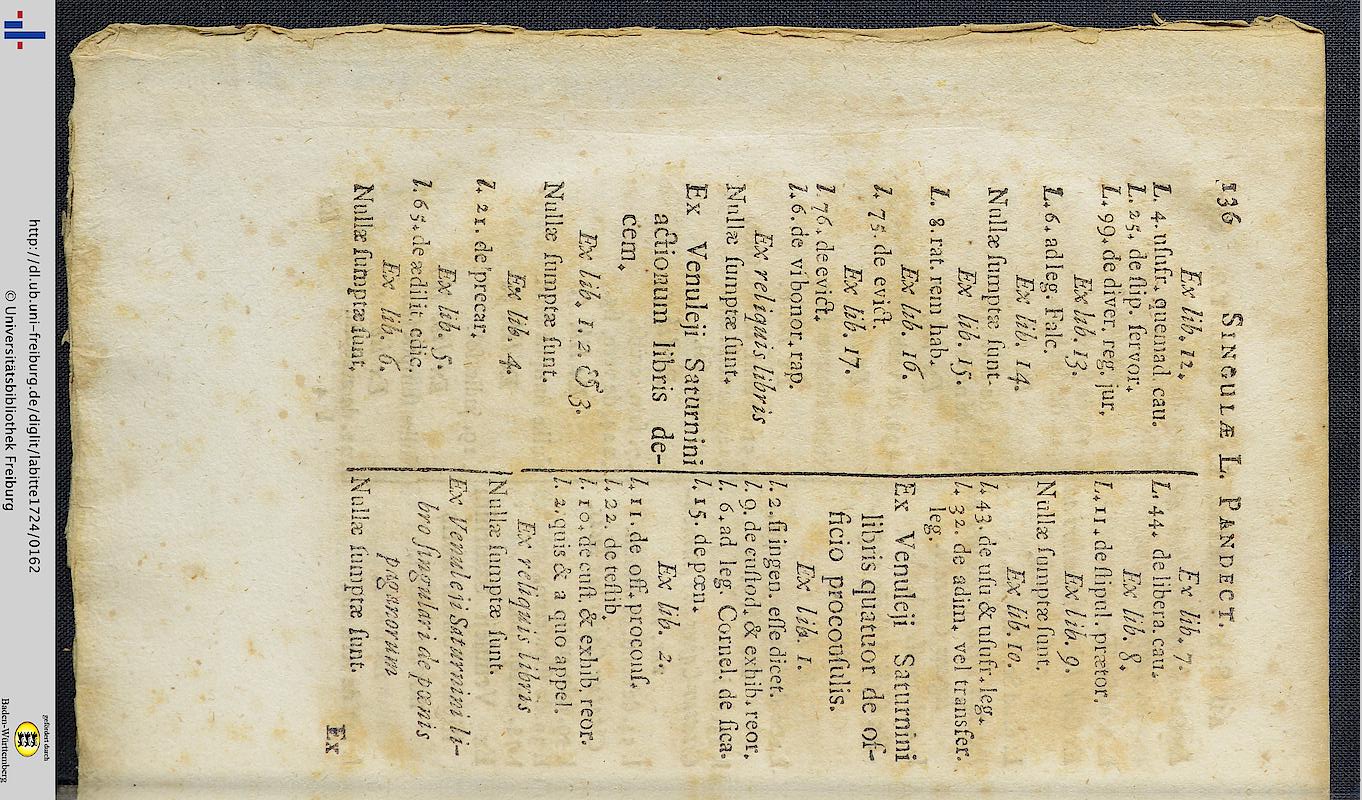 136 SINGULÆ L. PANDECT.
Ex lib. 12.
L. 4. uſufr. quemad. cau.
L. 25. de ſtip. ſervor.
L. 99. de diver. reg. jur.
Ex lib. 13.
L. 6. ad leg. Falc.
Ex lib. 14.
Nullæ ſumptæ ſunt.
Ex lib. 15.
L. 8. rat. rem hab.
Ex lib. 16.
l. 75. de evict.
Ex lib. 17.
l. 76. de evict.
l. 6. de vi bonor. rap.
Ex reliquis libris
Nullæ ſumptæ ſunt.
Ex Venuleji Saturnini
actionum libris de-
cem.
Ex lib. 1. 2. & 3.
Nullæ ſumptæ ſunt.
Ex lib. 4.
l. 21. de precar.
Ex lib. 5.
l. 65. de ædilit. edic.
Ex lib. 6.
Nullæ ſumptæ ſunt.
Ex lib. 7.
L. 44. de libera. cau.
Ex lib. 8.
L. 11. de ſtipul. prætor.
Ex lib. 9.
Nullæ ſumptæ ſunt.
Ex lib. 10.
l. 43. de uſu & uſufr. leg.
l. 32. de adim. vel transfer.
leg.
Ex Venuleji Saturnini
libris quatuor de of-
ficio proconſulis.
Ex lib. 1.
l. 2. ſi ingen. eſſe dicet.
l. 9. de cuſtod. & exhib. reor.
l. 6. ad leg. Cornel. de ſica.
l. 15. de pœn.
Ex lib. 2.
l. 11. de off. proconſ.
l. 22. de teſtib.
l. 10. de cuſt. & exhib. reor.
l. 2. quis & a quo appel.
Ex reliquis libris
Nullæ ſumptæ ſunt.
Ex Venuleji Saturnini li-
bro ſingulari de pœnis
paganorum
Nullæ ſumptæ ſunt.
Ex
http://dl.ub.uni-freiburg.de/diglit/labitte1724/0162
© Universitätsbibliothek Freiburg
gefördert durch
Baden-Württemberg